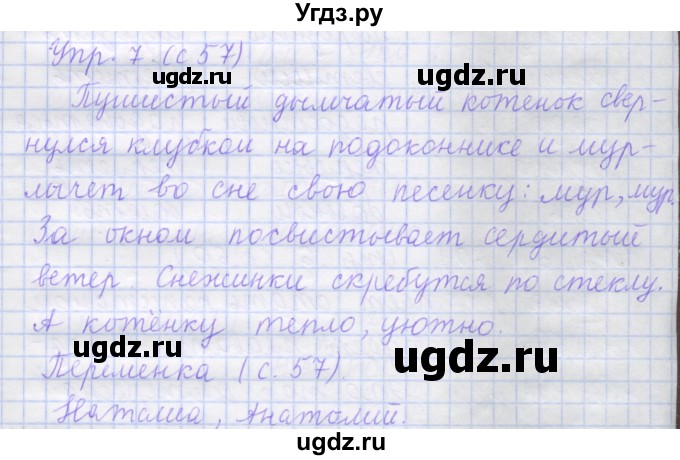 Угдз.ру
Упр. 7. (с 57)
ugdz.ru ugdz.ru
Пушистый дымчатый котенок свер-
нулся клубком на подоконнике и мур-
ugdz.ru
лычет во сне свою песенку: мур, мур.
За окном посвистывает сердитый
ugdz.ru ugdz.ru
ветер. Снежинки скребутся по стеклу.
А котёнку тепло, уютно.
ugdz.ru ugdz.ru
Переменка (с. 57).
Наталиа, Анатолий.
ugdz.ru